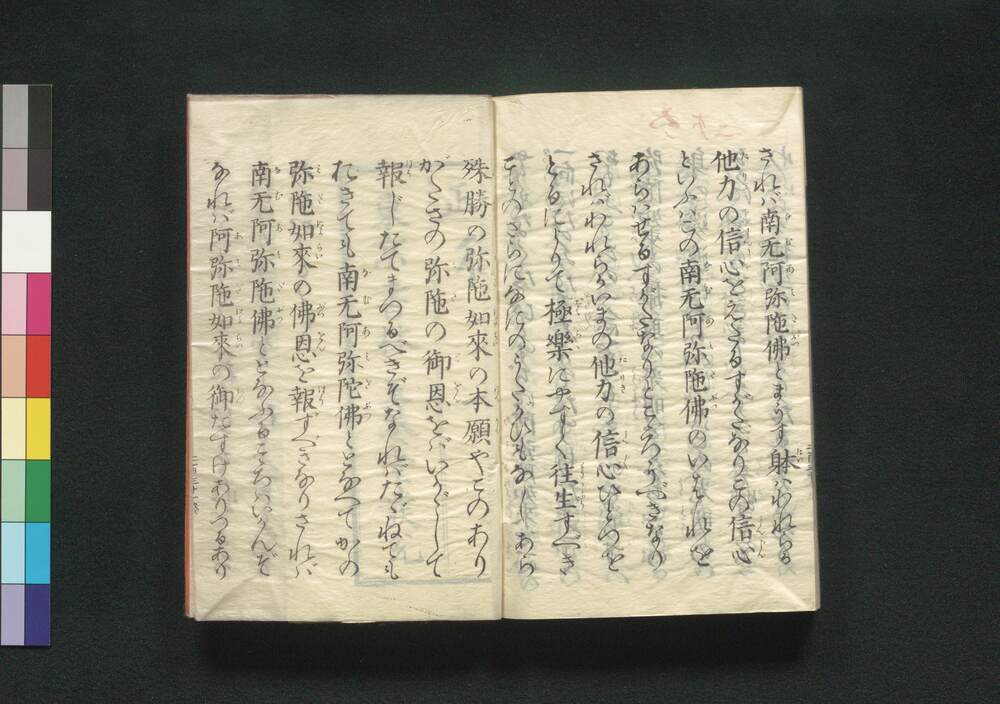 されバ南无阿弥陁佛とまうす躰ハわれらが
他力の信心をえたるすがたなりこの信心
といふハこの南无阿弥陁佛のいはれを
あらハせるすがたなりとこゝろうべきなり
されバわれらがいまの他力の信心ひとつを
とるによりて極樂にやすく徃生すべき
ことのさらになにのうたがひもなしあら
殊勝の弥陁如來の本願やこのあり
がたさの弥陁の御恩をバいかゞして
報じたてまつるべきぞなれバたゞねても
おきても南无阿弥陀佛ととなへてかの
弥陁如來の佛恩を報ずべきなりされバ
南無阿弥陁佛ととなふるこゝろハいかんぞ
なれバ阿弥陁如來の御たすけありつるあり